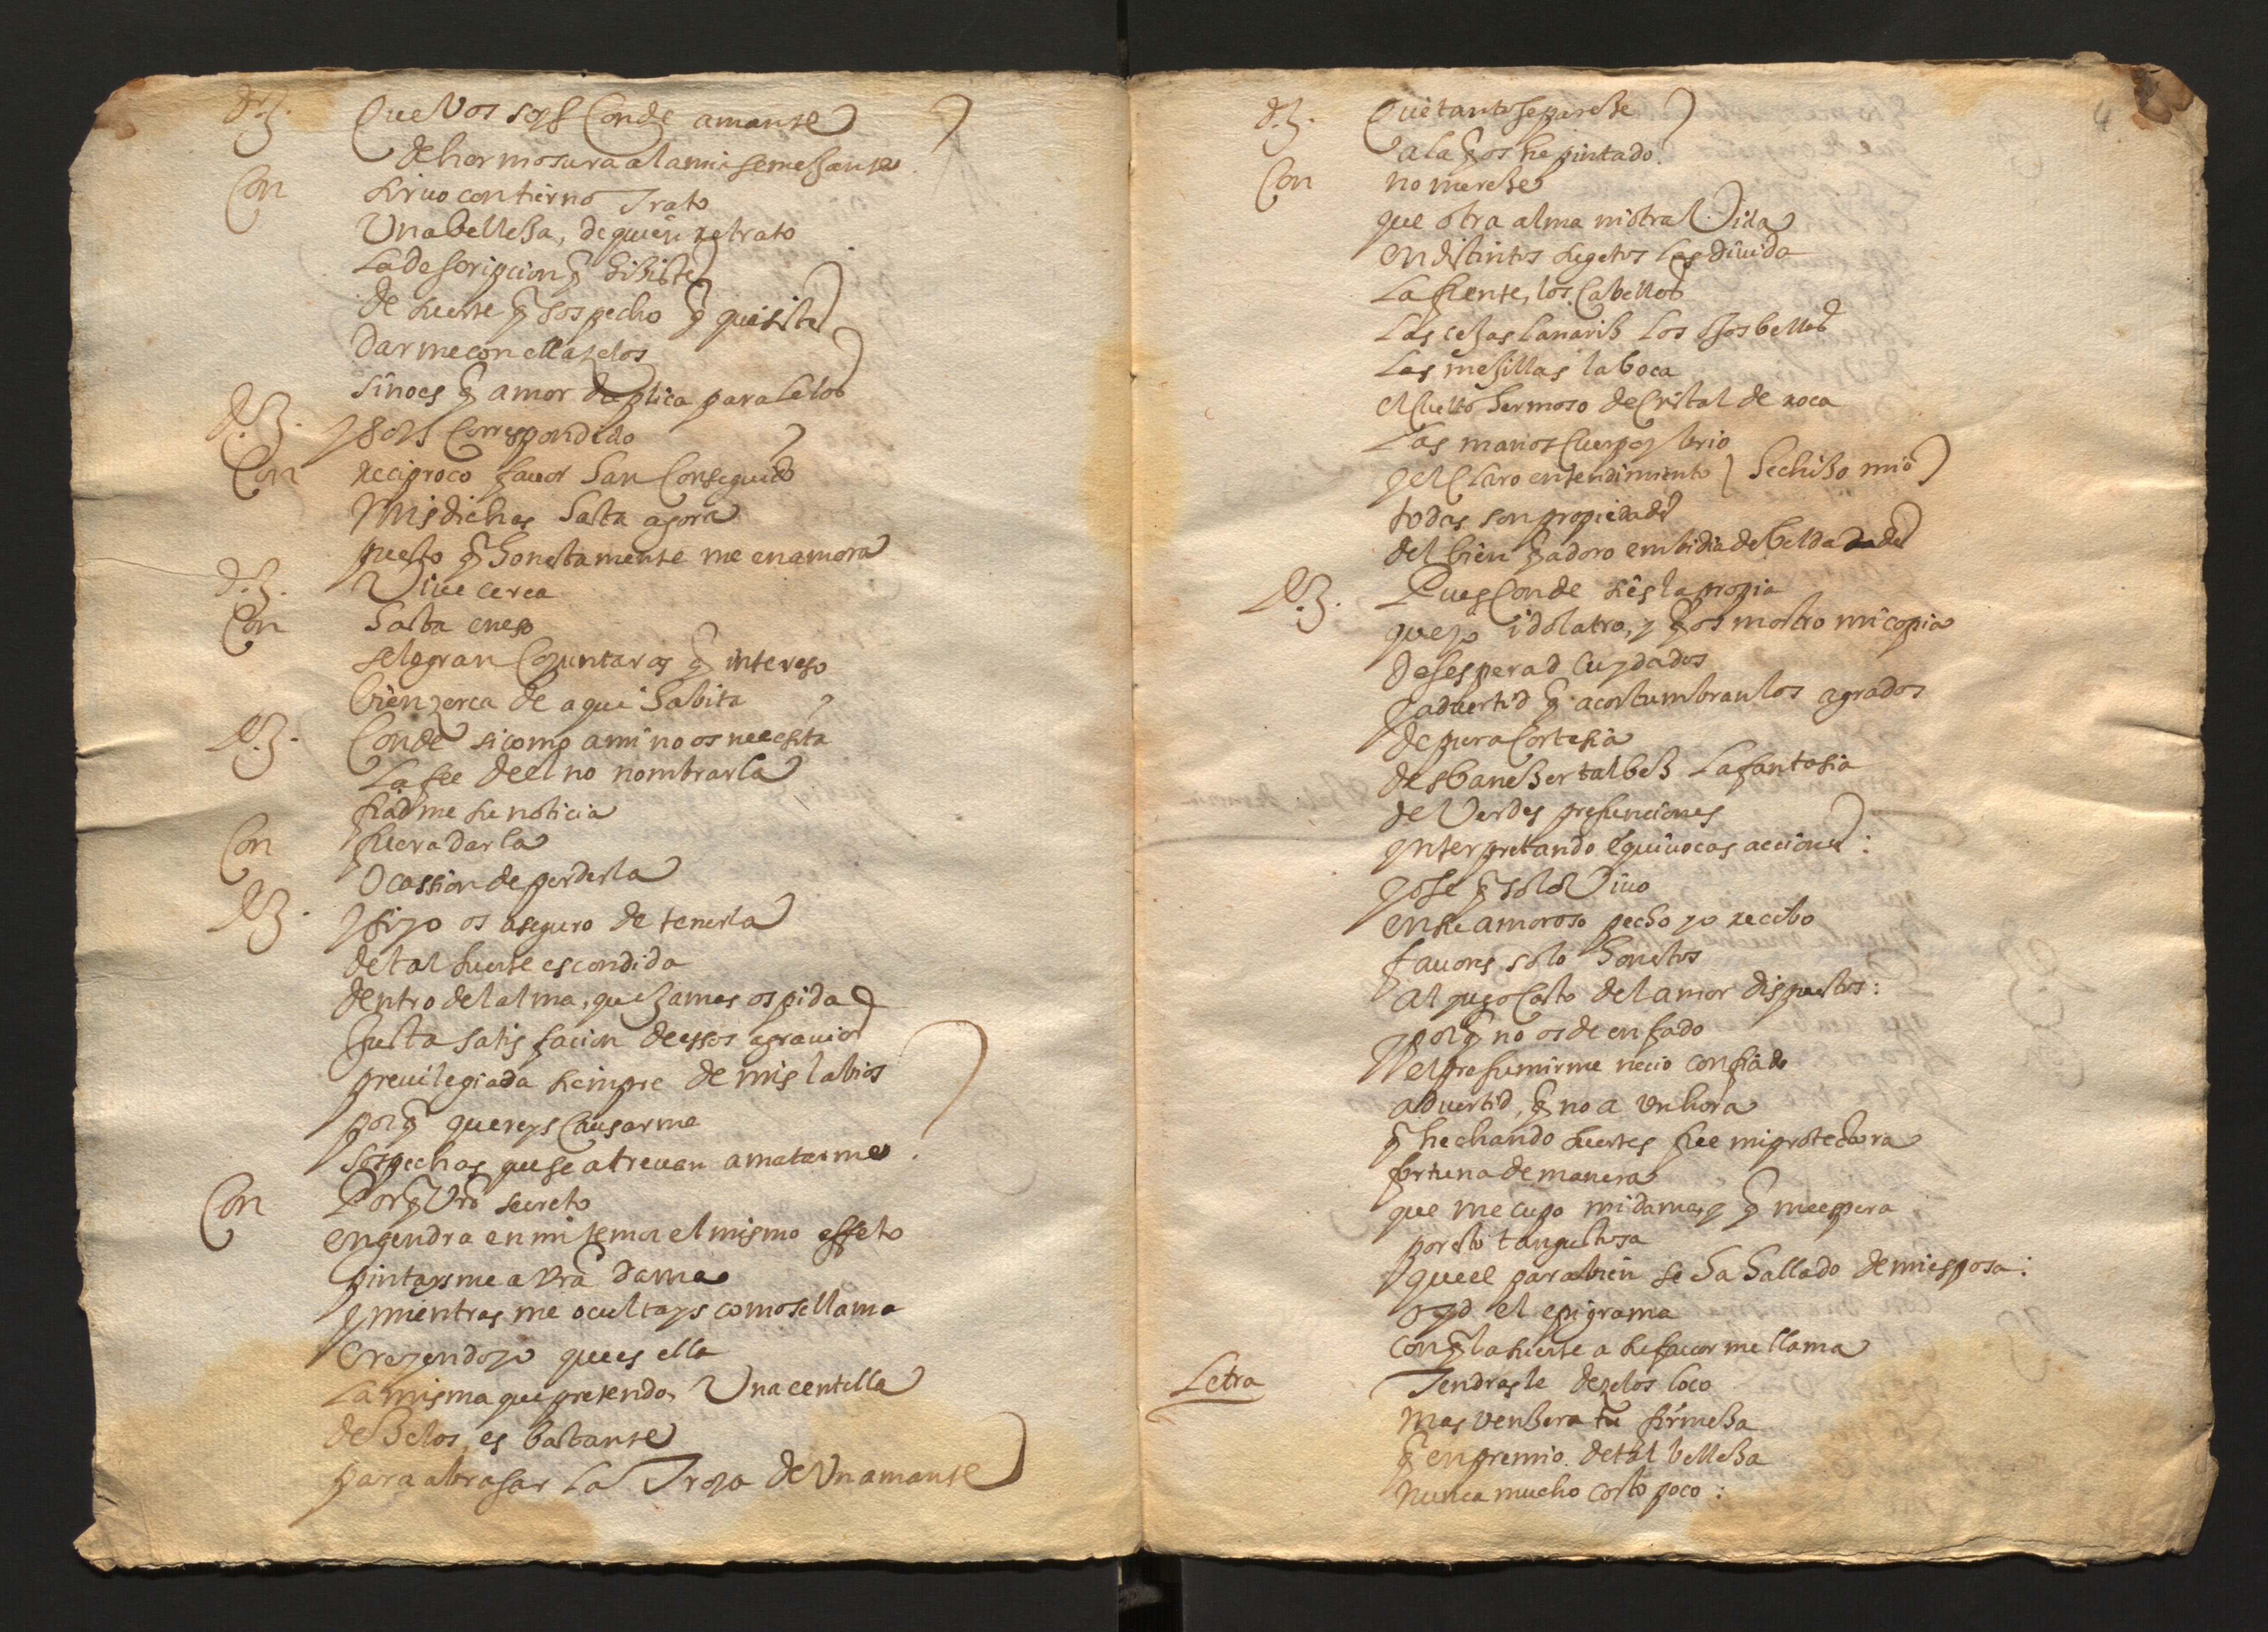 d.J. Que Vos soys Conde amante
de hermosura a la mia semejante ?
Con siruo con tierno Trato
Una belleza, de quien es retrato
La descripcion q hiziste
de suerte q sospecho q quisiste
darme con ella zelos
sino es q amor duplica paralelos
d.J. y soys Correspondido ?
Con reciproco fauor han Conseguido
mis dichas hasta agora
puesto q honestamente me enamora
d.J. Viue cerca
Con hasta en eso
se logran Coyunturas q intereso
bien zerca de aqui habita
d.J. Conde si como a mi no os necesita
La fee de el no nombrarla
fiadme su noticia
Con fuera darla
Ocassion de perderla
d.J. y si yo os aseguro de tenerla
de tal suerte escondida
dentro del alma, que jamas os pida
Justa satisfacion de essos agrauios
preuilegiada siempre de mis labios
porq quereys Causarme
sospechas que se atreuan a matarme ?
Con Porq Vro secreto
engendra en mi temor el mismo effeto
pintaysme a Vra dama
y mientras me ocultays como se llama
creyendo yo que es ella
La misma que pretendo, Una centella
de zelos, es bastante
para abrasar La Troya de Un amante
4
d.J. Que tanto se pareze
a la q os he pintado ?
Con no mereze
que otra alma ni otra Vida
en distintos sugetos Las diuida
La frente, los Cabellos
Las cejas la nariz Los ojos bellos
Las mejillas la boca
el Cuello hermoso de Cristal de roca
Las manos Cuerpo y brio
y el Claro entendimiento hechizo mio
todas son propiedades
del bien q adoro embidia de beldades
d.J. Pues Conde si es la propia
que yo idolatro, y q os mostro mi copia
desesperad Cuydados
y aduertid q acostumbran los agrados
de pura Cortesia
desbanezer tal bez La fantasia
de Verdes presunciones
ynterpretando equiuocas acciones:
yo se q solo Viuo
en su amoroso pecho yo recibo
fauores solo honestos
al yugo Casto del amor dispuestos:
y porq no os de enfado
el presumirme necio confiado
aduertid, q no a un hora
q hechando suertes fue mi protectora
fortuna de manera
que me cupo mi dama, y q me espera
por esto tan gustosa
que el parabien se ha hallado de mi esposa:
oyd el epigrama
con q la suerte a su fauor me llama
Letra Tendrasle de zelos loco
mas venzera tu firmeza
q en premio de tal belleza
nunca mucho costo poco: